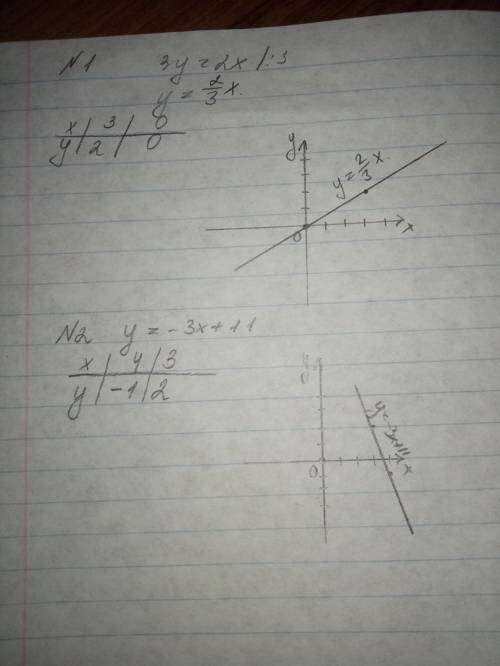 N1 3y = 2x |:3
y = 2/3 x.
x | 3 | 0
y | 2 | 0
y
y = 2/3 x.
0 x
N2 y = -3x + 11
x | 4 | 3
y | -1 | 2
y
y = -3x+11
0 x